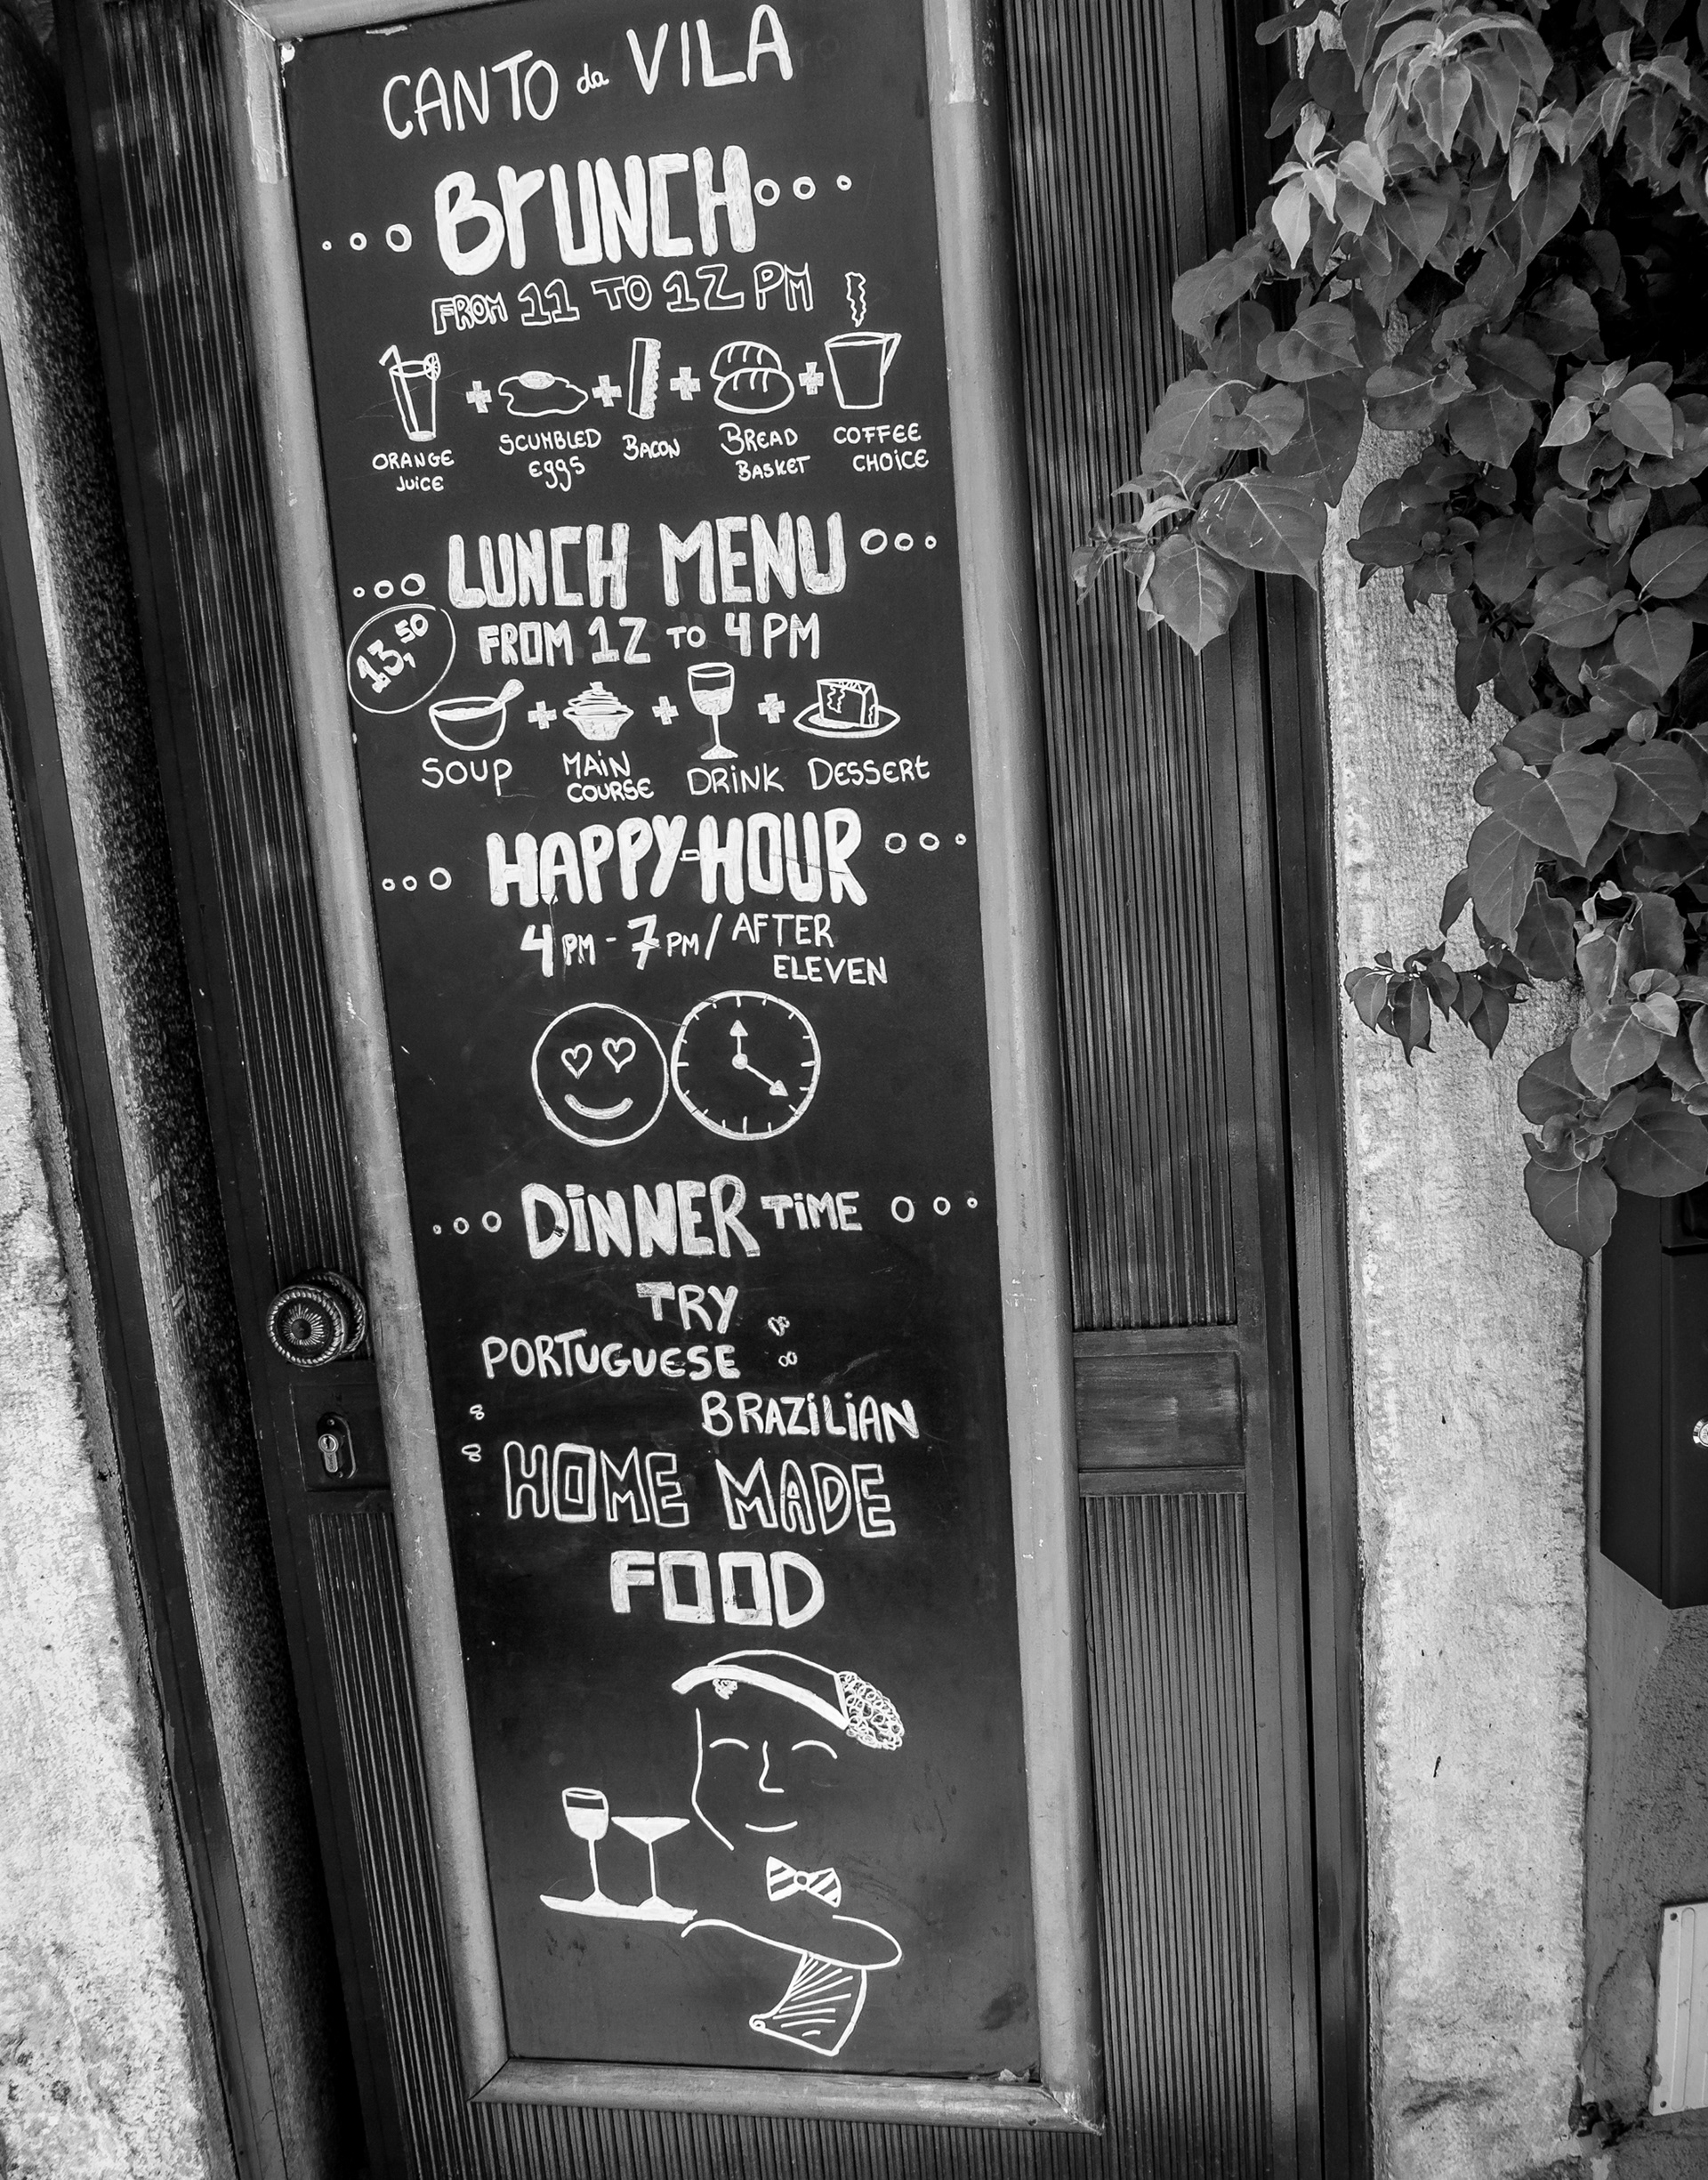 CANTO da VILA
BrUNCH
FROM 11 TO 12 PM
ORANGE JUiCE
SCUMBLED EggS
BACON
BREAD BASKET
COFFEE CHOiCE
LUNCH MENU
13,50
FROM 12 TO 4 PM
SOUP
MAIN COURSE
DRiNK
DESSERt
HAPPY-HOUR
4 PM - 7 PM / AFTER
ELEVEN
DiNNER TiME
TRY
PORTUGUESE
BRAZiLiAN
HOME MADE
FOOD